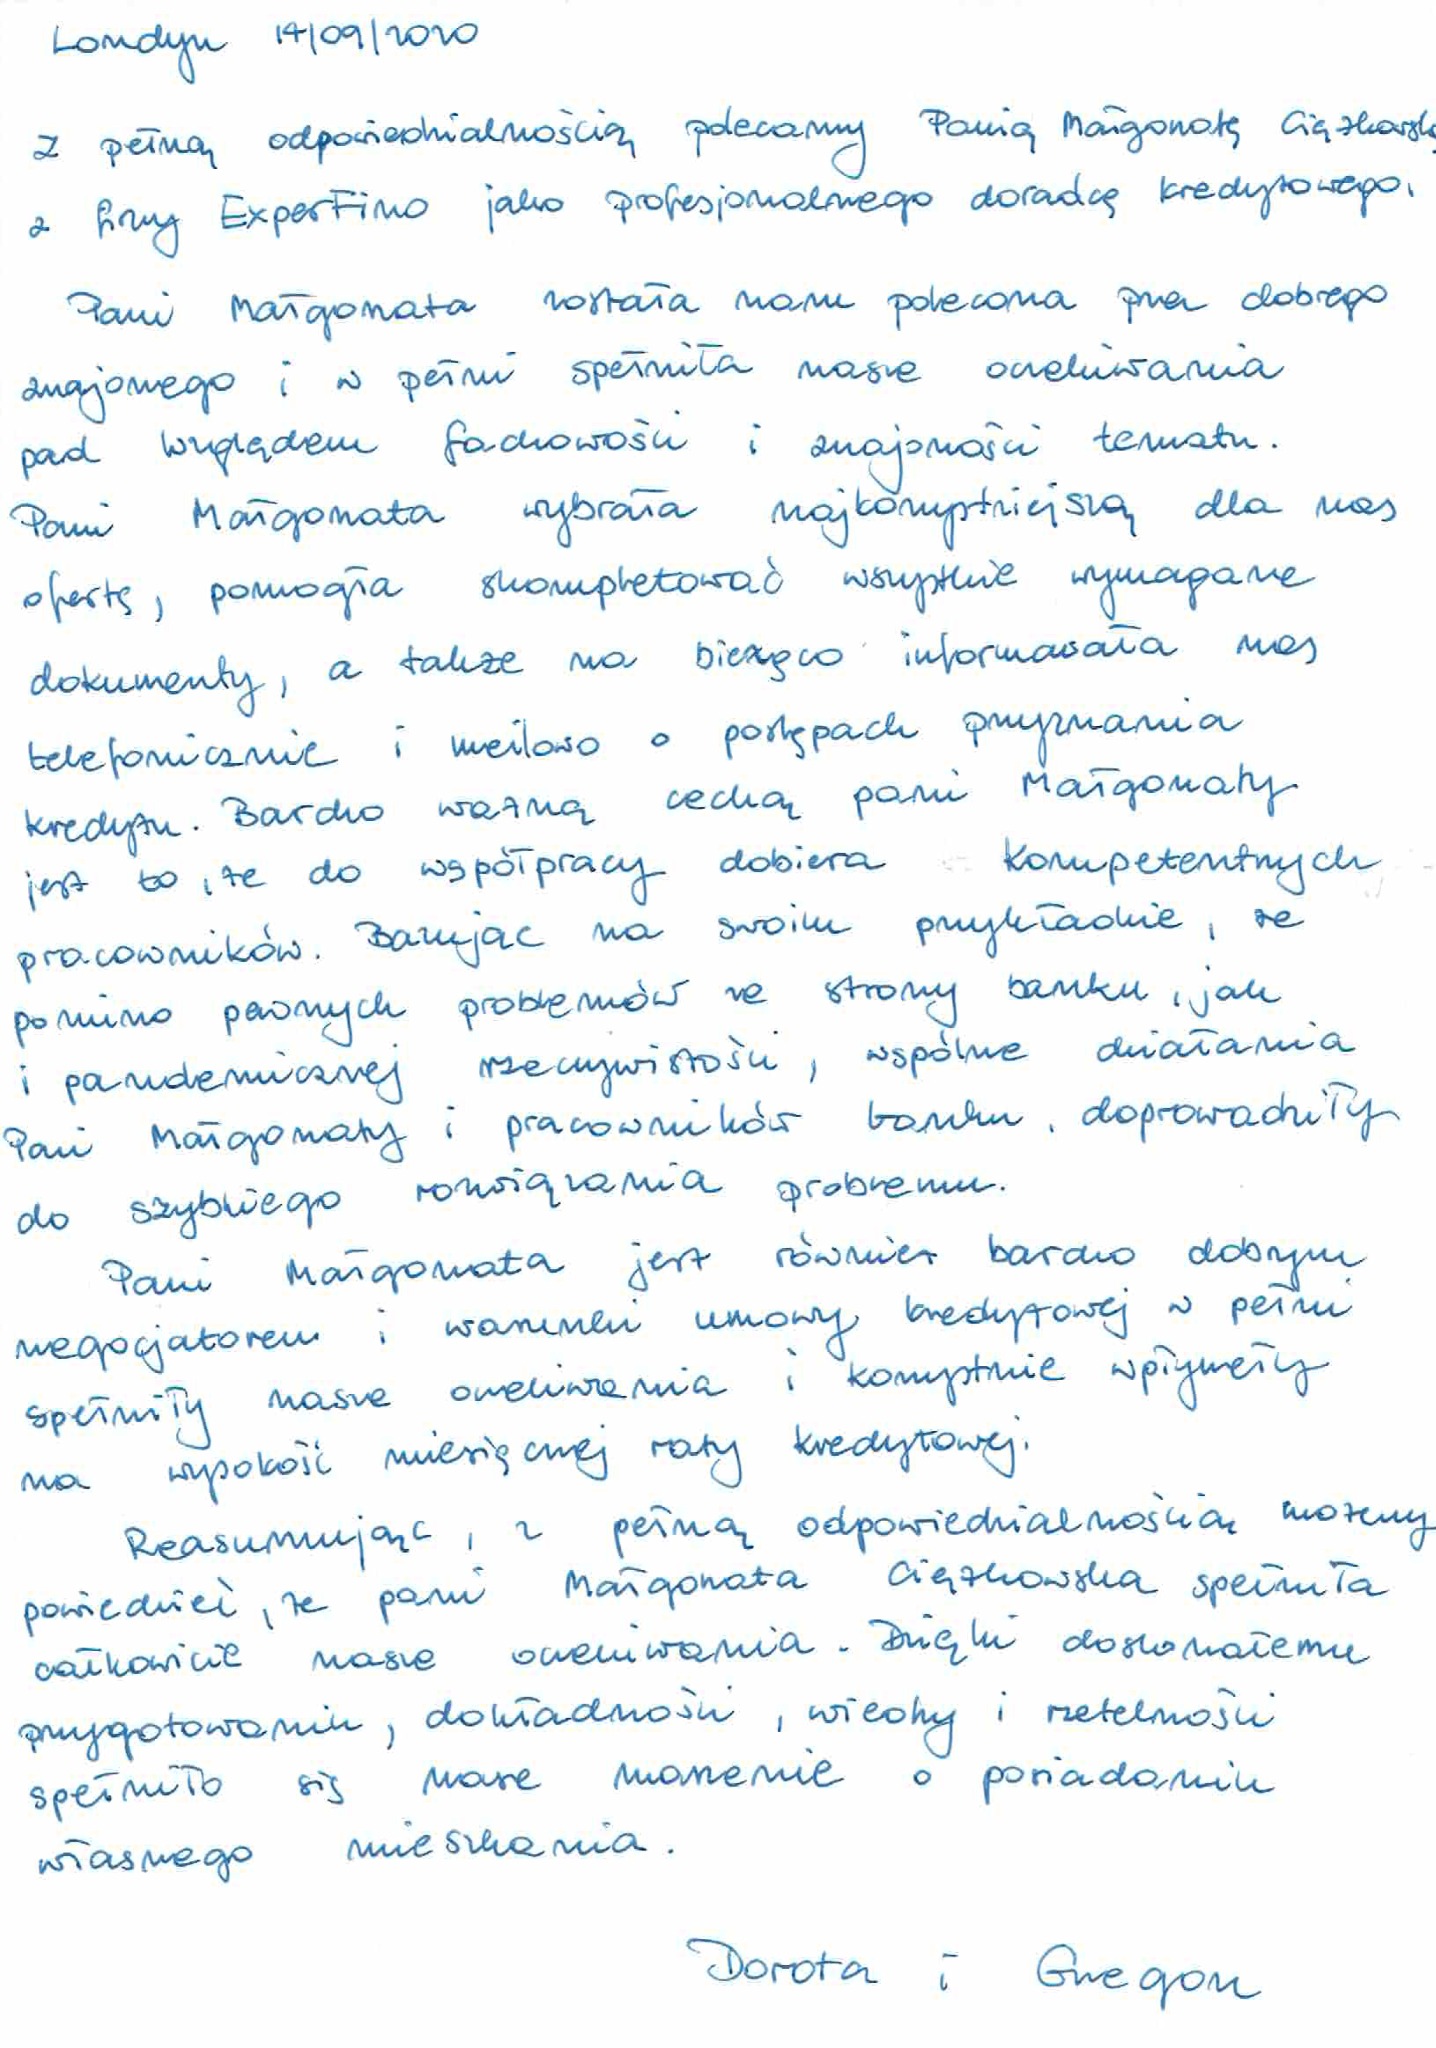 Londyn 14/09/2020
Z pełną odpowiedzialnością polecamy Panią Małgorzatę Ciążkowską
z firmy ExperFino jako profesjonalnego doradcę kredytowego.
Pani Małgorzata została nam polecona przez dobrego
znajomego i w pełni spełniła nasze oczekiwania
pod względem fachowości i znajomości tematu.
Pani Małgorzata wybrała najkorzystniejszą dla nas
ofertę, pomogła skompletować wszystkie wymagane
dokumenty, a także na bieżąco informowała nas
telefonicznie i meilowo o postępach przyznania
kredytu. Bardzo ważną cechą pani Małgorzaty
jest to, że do współpracy dobiera kompetentnych
pracowników. Bazując na swoim przykładzie, że
pomimo pewnych problemów ze strony banku, jak
i pandemicznej rzeczywistości, wspólne działania
Pani Małgorzaty i pracowników banku. doprowadziły
do szybkiego rozwiązania problemu.
Pani Małgorzata jest również bardzo dobrym
negocjatorem i warunki umowy kredytowej w pełni
spełniły nasze oczekiwania i korzystnie wpłynęły
na wysokość miesięcznej raty kredytowej.
Reasumując, z pełną odpowiedzialnością możemy
powiedzieć, że pani Małgorzata Ciążkowska spełniła
całkowicie nasze oczekiwania. Dzięki doskonałemu
przygotowaniu, dokładności, wiedzy i rzetelności
spełniło się nasze marzenie o posiadaniu
własnego mieszkania.
Dorota i Grzegorz